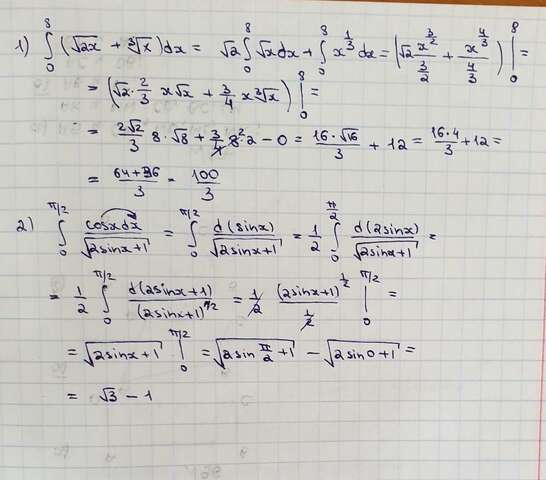 1) ∫₀⁸ (√2x + ∛x)dx = √2 ∫₀⁸ √x dx + ∫₀⁸ x^(1/3) dx = (√2 x^(3/2)/(3/2) + x^(4/3)/(4/3)) |₀⁸ =
= (√2 · 2/3 x√x + 3/4 x ∛x) |₀⁸ =
= 2√2/3 8 · √8 + 3/4 8² · 2 − 0 = 16 · √16/3 + 12 = 16 · 4/3 + 12 =
= 64 + 36/3 = 100/3
2) ∫₀^(π/2) cosxdx/√(2sinx+1) = ∫₀^(π/2) d(sinx)/√(2sinx+1) = 1/2 ∫₀^(π/2) d(2sinx)/√(2sinx+1) =
= 1/2 ∫₀^(π/2) d(2sinx+1)/(2sinx+1)^(1/2) = 1/2 (2sinx+1)^(1/2)/(1/2) |₀^(π/2) =
= √(2sinx+1) |₀^(π/2) = √(2sin π/2 + 1) − √(2sin0+1) =
= √3 − 1